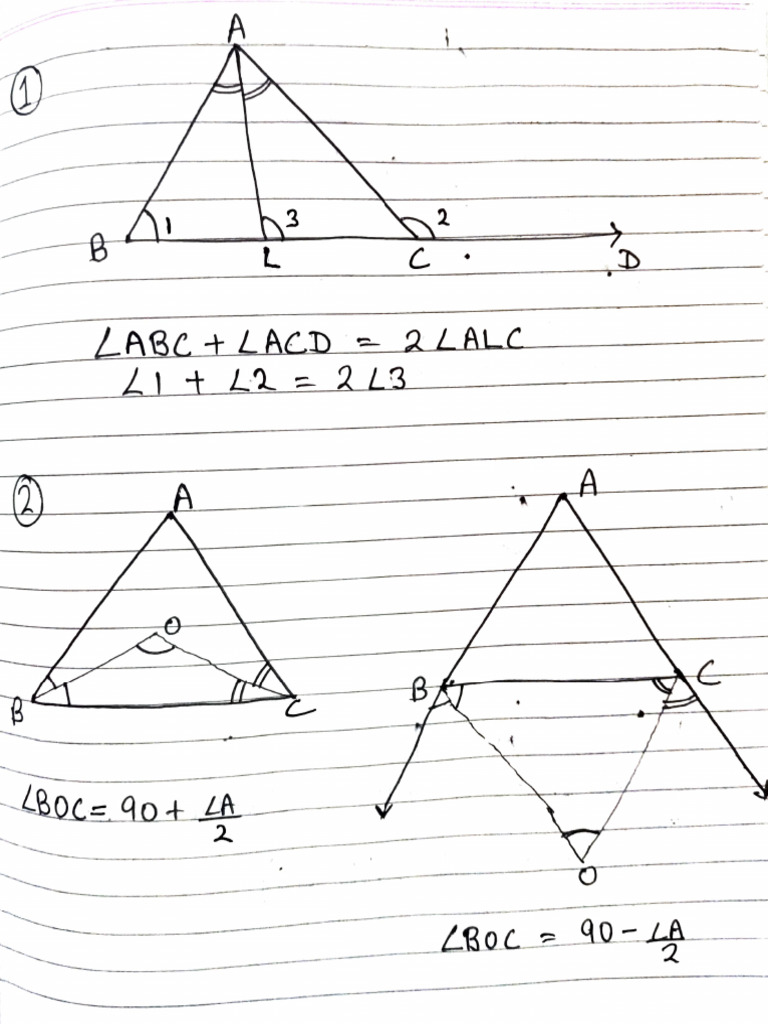 ①
A
1
3
2
B
L
C
D
∠ABC + ∠ACD = 2∠ALC
∠1 + ∠2 = 2∠3
②
A
O
B
C
∠BOC = 90 + ∠A/2
A
B
C
O
∠BOC = 90 - ∠A/2